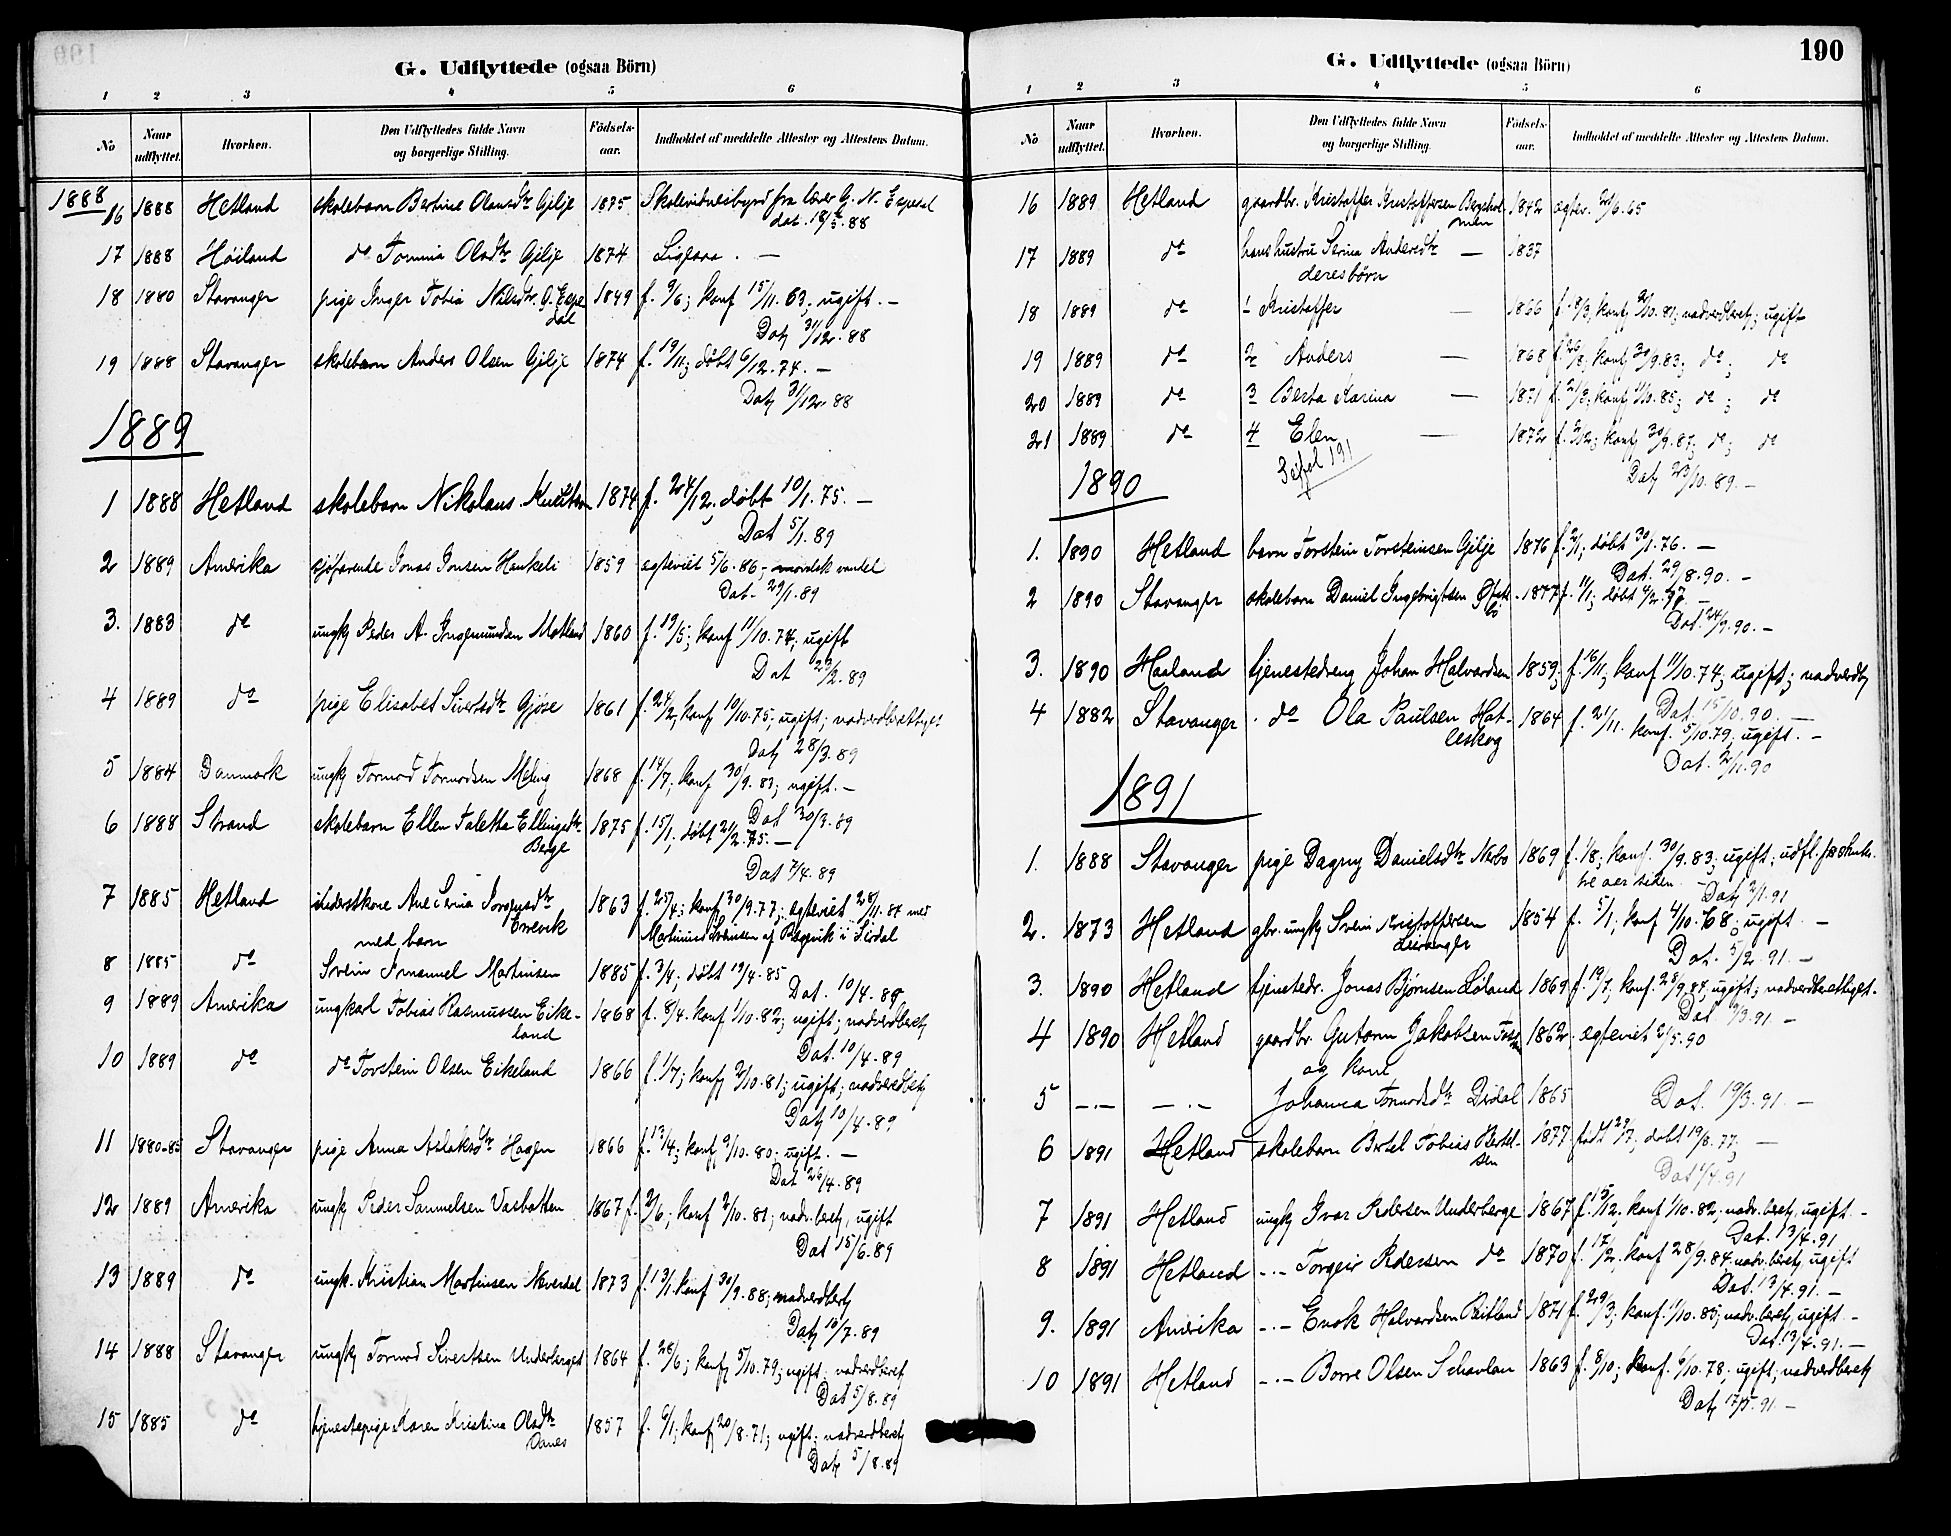 G. Udflyttede (ogsaa Börn)
1 2 3 4 5 6
No Naar udflyttet. Hvorhen. Den Udflyttedes fulde Navn og borgerlige Stilling. Födsels-aar. Indholdet af meddelte Attester og Attestens Datum.
1888
16 1888 Hetland skolebarn Bertine Olausdtr Gilje 1875 Skolevidnesbyrd fra lærer G. N.
dat. 88
17 1888 Höiland do Tomina Olsdtr Gilje 1874 Ligesaa. —
18 1880 Stavanger pige Inger Tobia Nilsdtr. 1849 f. 9/6; konf 15/11.63; ugift. —
dal Dat 31/12.88
19 1888 Stavanger skolebarn Anders Olsen Gilje 1874 f. 19/11; døbt 6/12.74. —
Dat 31/12.88
1889
1 1888 Hetland skolebarn Nikolaus 1874 f. 24/12; døbt 10/1.75. —
Dat 5/1.89
2 1889 Amerika sjøfarende Jonas Jonsen Haukeli 1859 egteviet 5/6.86; vandel
Dat. 29/1.89
3. 1883 do ungk Peder A. Ingemundsen 1860 f. 19/5; konf 11/10.74; ugift
Dat 23/2.89
4 1889 do pige Elisabet Sivertsdtr Gjøse 1861 f. 24/2; konf 10/10.75; ugift; nadverdberettiget
Dat 28/3.89
5 1884 Danmark ungk Tormod Tormodsen Meling 1868 f. 14/7; konf 30/9.83; ugift. —
Dat 30/3.89
6 1888 Strand skolebarn Ellen Taletta Ellingsdtr 1875 f. 15/1; døbt 21/2.75. —
Berge Dat 7/4.89
7 1885 Hetland Ane Serina Jorgensdtr 1863 f. 25/4; konf 30/9.77; egteviet 28/11.84 med
Martinius Sveinsen af i Sirdal
med barn
8 1885 do Svein Emanuel Martinsen 1885 f. 3/4; døbt 19/4.85
Dat. 10/4.89
9 1889 Amerika ungkarl Tobias Rasmussen Eike- 1868 f. 8/4. konf 1/10.82; ugift; nadverdberet
land Dat. 10/4.89
10 1889 do do Torstein Olsen Eikeland 1866 f. 1/7; konf 2/10.81; ugift; nadverdberet
Dat 10/4.89
11 1880-85 Stavanger pige Anna Aslaksdtr Hagen 1866 f. 13/4; konf 9/10.80; ugift. —
Dat 26/4.89
12 1889 Amerika ungk Peder Samuelsen Vasbotten 1867 f. 2/6; konf 2/10.81; nadv. beret, ugift
Dat 15/6.89
13 1889 do ungk. Kristian Martinsen 1873 f. 13/1. konf 30/9.88; nadverdbert
Dat 10/7.89
14 1888 Stavanger ungk Tormod Sivertsen Underberget 1864 f. 28/6; konf 5/10.79; ugift; nadverdberet
Dat 5/8.89
15 1885 do tjenestepige Karen Kristina Olsdtr 1857 f. 6/1; konf 20/8.71; ugift; nadverdberet
Dat 5/8.89
190
G. Udflyttede (ogsaa Börn)
1 2 3 4 5 6
No Naar udflyttet. Hvorhen. Den Udflyttedes fulde Navn og borgerlige Stilling. Födsels-aar. Indholdet af meddelte Attester og Attestens Datum.
16 1889 Hetland gaardbr. Kristoffer Kristoffersen Bergehol- 1842 egtev. 6.65
men
17 1889 do hans hustru Serina Andersdtr — 1837
deres børn
18 1889 do 1 Kristoffer — 1866 f. 8/3; konf 2/10.81; nadverdberet; ugift
19 1889 do 2 Anders — 1868 f. 26/8; konf 30/9.83; do; do
20 1889 do 3 Berta Karina — 1871 f. 2/3; konf 11/10.85; do; do
21 1889 do 4 Elen — 1872 f. 3/12; konf 30/9.87; do; do
191 Dat 23/10.89. —
1890
1. 1890 Hetland barn Torstein Torsteinsen Gilje 1876 f. 2/1; døbt 30/1.76. —
Dat. 29/8.90. —
2 1890 Stavanger skolebarn Daniel Ingebrigtsen 1877 f. 11/1; døbt
Dat. 24/9.90. —
3. 1890 Haaland tjenestedreng Johan Halvordsen 1859; f. 16/11; konf 11/10.74; ugift; nadverdb
Dat. 15/10.90. —
4 1882 Stavanger do Ola Paulsen Hat- 1864 f. 21/11. konf. 5/10.79; ugift. —
leskog Dat. 2/11.90
1891
1. 1888 Stavanger pige Dagny Danielsdtr Nerbo 1869 f. 1/8; konf. 30/9.83; ugift; udfl.
tre aar siden. — Dat 2/1.91
2. 1873 Hetland gbr. ungk Svein Kristoffersen 1854 f. 5/1; konf 4/10.68; ugift. —
Leivanger Dat. 5/2.91. —
3. 1890 Hetland tjenestedr. Jonas Bjørnsen Løland 1869 f. 19/7; konf. 28/9.84; ugift; nadverdberettiget.
Dat 3.91. —
4 1890 Hetland gaardbr. Gutorm Jakobsen 1862 egteviet 2/5.90
og kone
5 —.— —.— Johanna Tormodsdtr Dirdal 1865 Dat. 19/3.91. —
6 1891 Hetland skolebarn Bertel Tobias Bertel- 1877 født 29/7; døbt 19/8.77; —
sen Dat 4.91
7 1891 Hetland ungk Ivar Pedersen Underberge 1867 f. 15/12; konf 1/10.82; nadv. beret, ugift. —
Dat. 13/4.91
8 1891 Hetland —.— Torgeir Pedersen do 1870 f. 17/2; konf 28/9.84 nadv. beret, ugift
Dat. 13/4.91. —
9. 1891 Amerika —.— Enok Halvordsen Reitland 1871 f. 29/3; konf. 11/10.85; nadv. beret, ugift. —
Dat. 13/4.91. —
10 1891 Hetland —.— Borre Olsen Scharlau 1863 f. 8/10; konf. 6/10.78; ugift; nadverdberet
Dat 17/5.91. —